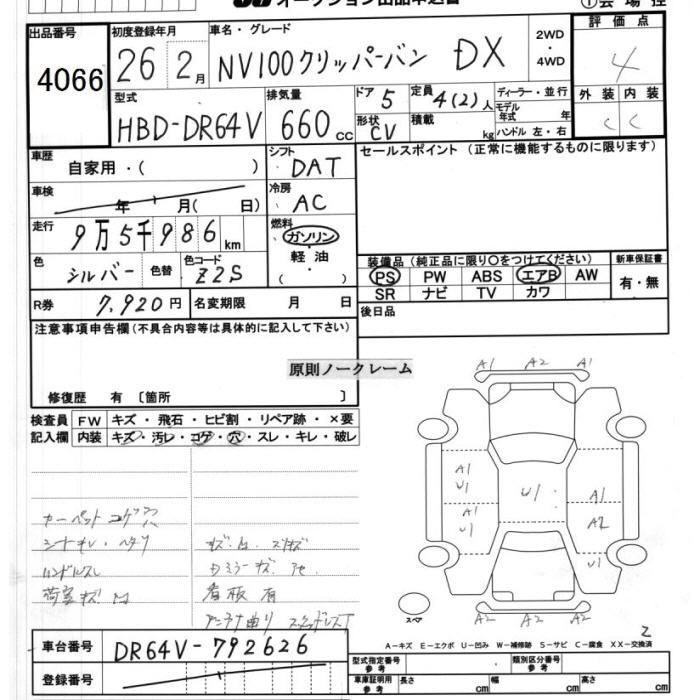 オークション出品申込書
①会場控
出品番号 4066
初度登録年月 26 2月
車名・グレード NV100クリッパーバン DX
2WD・4WD
評価点 4
外装 内装
C C
型式 HBD-DR64V
排気量 660cc
ドア 5
形状 CV
定員 4(2)人
積載 kg
ディーラー・並行
モデル年式 年
ハンドル 左・右
車歴 自家用・( )
シフト DAT
セールスポイント (正常に機能するものに限ります)
車検 年 月( 日)
冷房 AC
走行 9万5千986km
燃料 ガソリン
軽油
( )
色 シルバー 色替
色コード Z2S
装備品 (純正品に限り〇をつけてください)
新車保証書
PS PW ABS エアB AW
有・無
SR ナビ TV カワ
R券 7,920円 名変期限 月 日
後日品
注意事項申告欄(不具合内容等は具体的に記入して下さい)
原則ノークレーム
修復歴 有 〔箇所 〕
検査員記入欄
FW キズ・飛石・ヒビ割・リペア跡・×要
内装 キズ・汚レ・コゲ・穴・スレ・キレ・破レ
A1 A2 A1
A1 U1
U1
A1
A1 U1
A2
U1
カーペット コゲ 穴
シートキレ・ヘタリ
ハンドルスレ
荷室キズ
キズ
ミラーキズ
看板 有
アンテナ曲り スタッドレスT
スペア
A2 A2 A2
2
A-キズ E-エクボ U-凹み W-補修跡 S-サビ C-腐食 XX-交換済
車台番号 DR64V-792626
登録番号
型式指定番号 参考
類別区分番号 参考
車庫証明用 参考 長さ cm 幅 cm 高さ cm